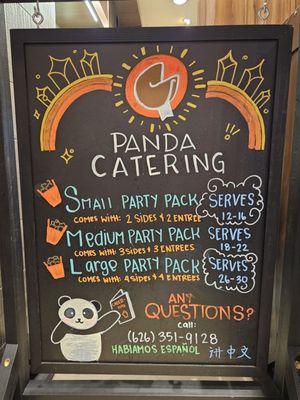 PANDA
CATERING
Small PARTY PACK SERVES 12-16
COMES WITH: 2 SIDES & 2 ENTREES
Medium PARTY PACK SERVES 18-22
COMES WITH: 3 SIDES & 3 ENTREES
Large PARTY PACK SERVES 26-30
COMES WITH: 4 SIDES & 4 ENTREES
ANY
QUESTIONS?
call:
(626) 351-9128
HABlAMOS ESPAÑOL 讲中文